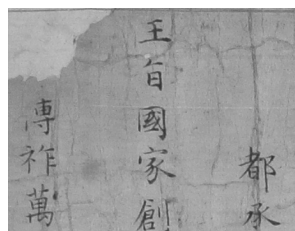 都承
王旨國家創
傳祚萬